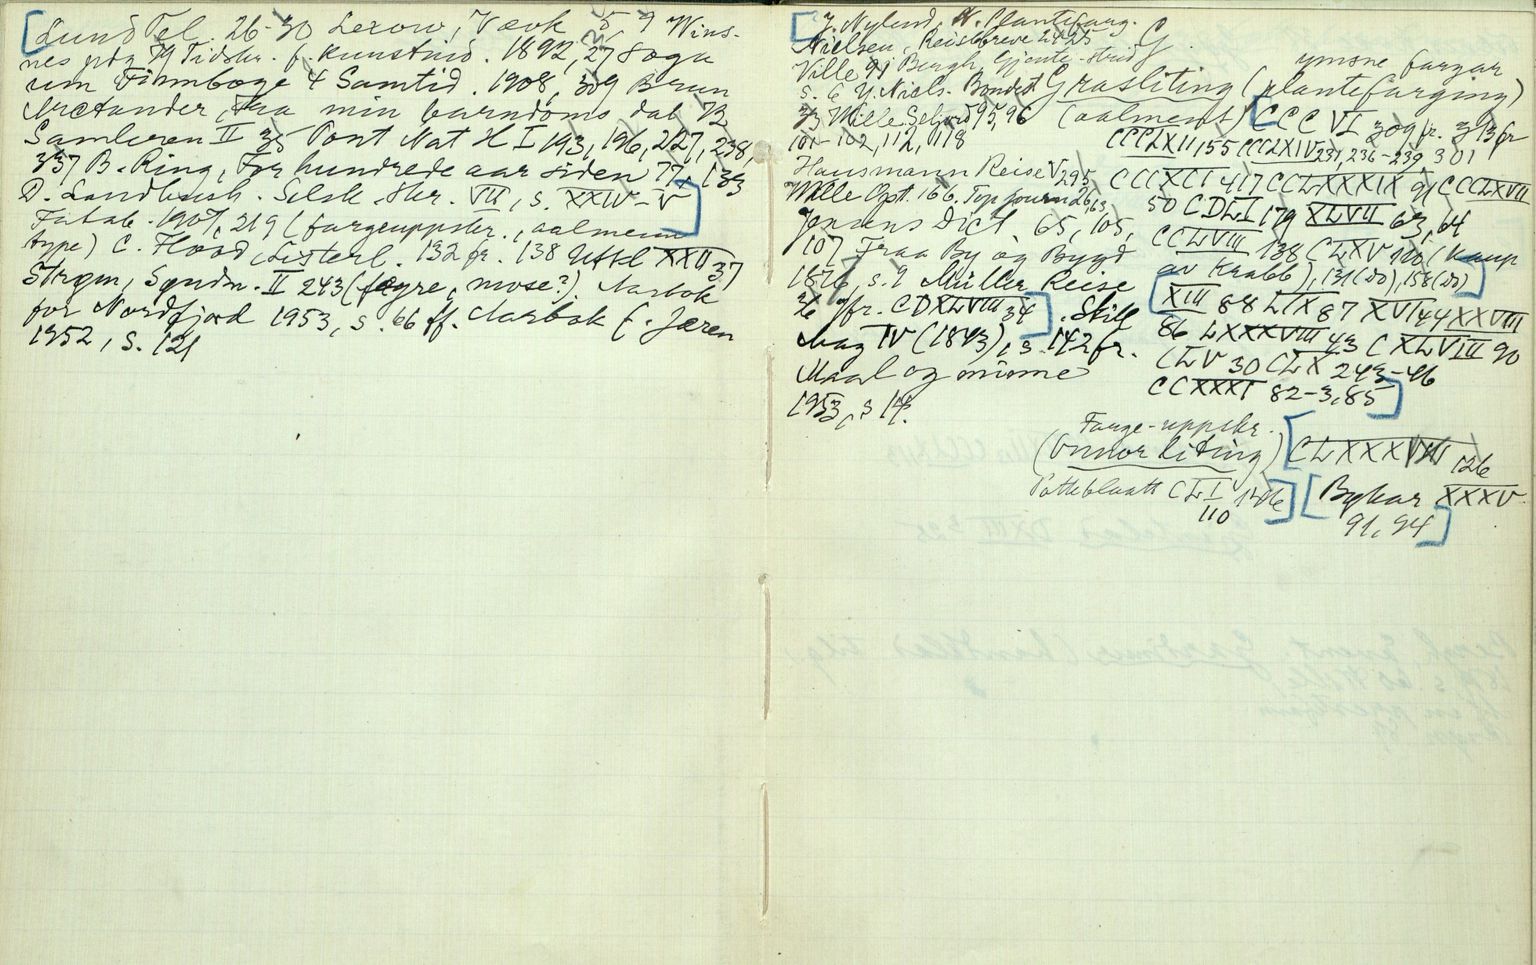 [Lund Tel. 26-30 Lexow, Vævk 5, 9 Wins-
nes Tidskr. f. kunstind. 1892, 27 Soga
um Finnboge 4 Samtid. 1908, 309 Brun
Arctander, Fraa min barndoms dal 73
Samleren II 35 Pont Nat H I 193, 196, 227, 238,
337 B. Ring, For hundrede aar siden 77, 133
D. Landhush. Selsk. Skr. VII, s. XXIV-V]
Fatab. 1907, 219 (fargeuppskr., aalmenn
type) C. Flood, Listerl. 132 fr. 138 Uttl XXII 37
Strøm, Søndm. II 243 (føgre, mose?). Aarbok
for Nordfjord 1953, s. 66 ff. Aarbok f. Jæren
1952, s. 121
[J. Nylund, N. Plantefarg.
Nielsen, Reisebreve 24-25
Wille 91 Bergh, Gjente-Strid
s. 6 Y. Niels. Bondest
73 Wille Seljord 95, 96
101-102, 112, 118
Hausmann Reise V 295
Wille Opt. 166. Top journ 26, 63
Jensens Dict. 65, 105,
107 Fraa By og Bygd
1876, s. 9 Müller Reise
26 Jfr. CDXLVIII 34]. Skill
Mag IV (1843), s. 142 fr.
Maal og minne
1953, s 14.
G
ymsne fargar
Grasliting (plantefarging)
(aalment) [CCCVI 309 fr. 313 fr
CCCLXII, 155 CCCLXIV 231, 236-239, 301
CCCXCI 417 CCLXXXIX 91 CCCLXVII
50 CDLI 179 XLVII 63, 64
CCLVIII 138 CLXV 120 (Kaup
av Krabb), 131 (do), 158 (do)]
[XIII 88 LIX 87 XVI 44 XXVIII
86 LXXXVIII 43 CXLVIII 90
CLV 30 CLX 243-46
CCXXXI 82-3, 85]
Farge-uppskr.
(Onnor liting) [CLXXXVIII 126
Potteblaatt CLI 146] [Bykar XXXV
110 91, 94]